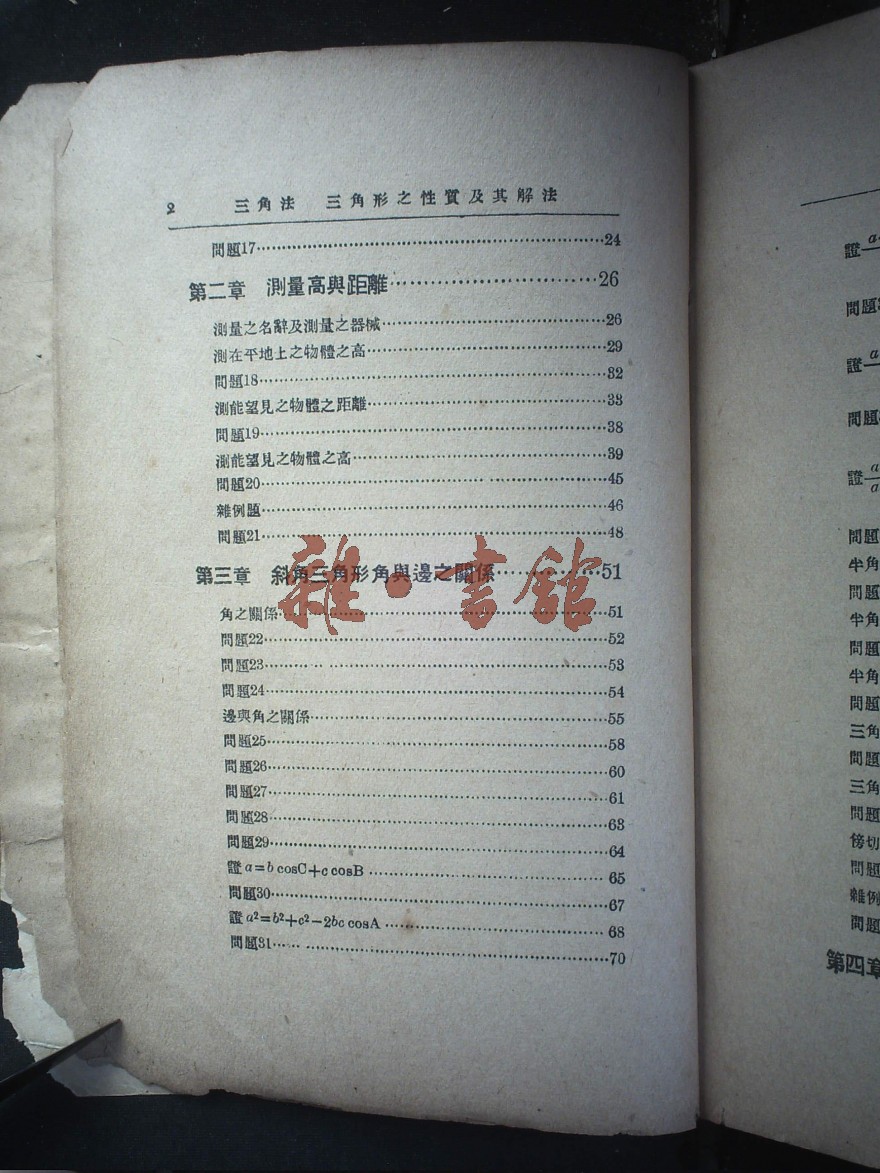 2 三角法 三角形之性質及其解法
問題17……24
第二章 測量高與距離……26
測量之名辭及測量之器械……26
測在平地上之物體之高……29
問題18……32
測能望見之物體之距離……33
問題19……38
測能望見之物體之高……39
問題20……45
雜例題……46
問題21……48
第三章 斜角三角形角與邊之關係……51
雜·書館
角之關係……51
問題22……52
問題23……53
問題24……54
邊與角之關係……55
問題25……58
問題26……60
問題27……61
問題28……63
問題29……64
證 a=b cosC+c cosB……65
問題30……67
證 a²=b²+c²-2bc cosA……68
問題31……70
證 a
問題
證 a
問題
證 a
a
問題
半角
問題
半角
問題
半角
問題
三角
問題
三角
問題
傍切
問題
雜例
問題
第四章